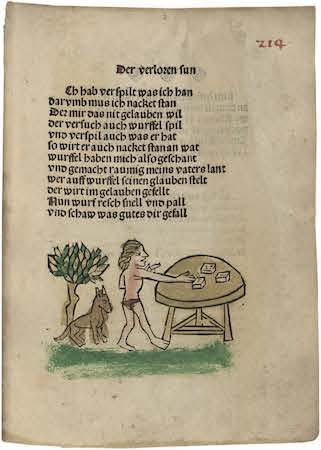 214
Der verloren sun
Ich hab verspilt was ich han
darvmb mus ich nacket stan
Der mir das nit gelauben wil
der versuch auch wurffel spil
vnd verspil auch was er hat
so wirt er auch nacket stan an wat
wurffel haben mich also geschant
vnd gemacht raumig meins vaters lant
wer auff wurffel seinen glauben stelt
der wirt im gelauben gefellt
Nun wurf resch snell vnd pall
vnd schaw was gutes dir gefall